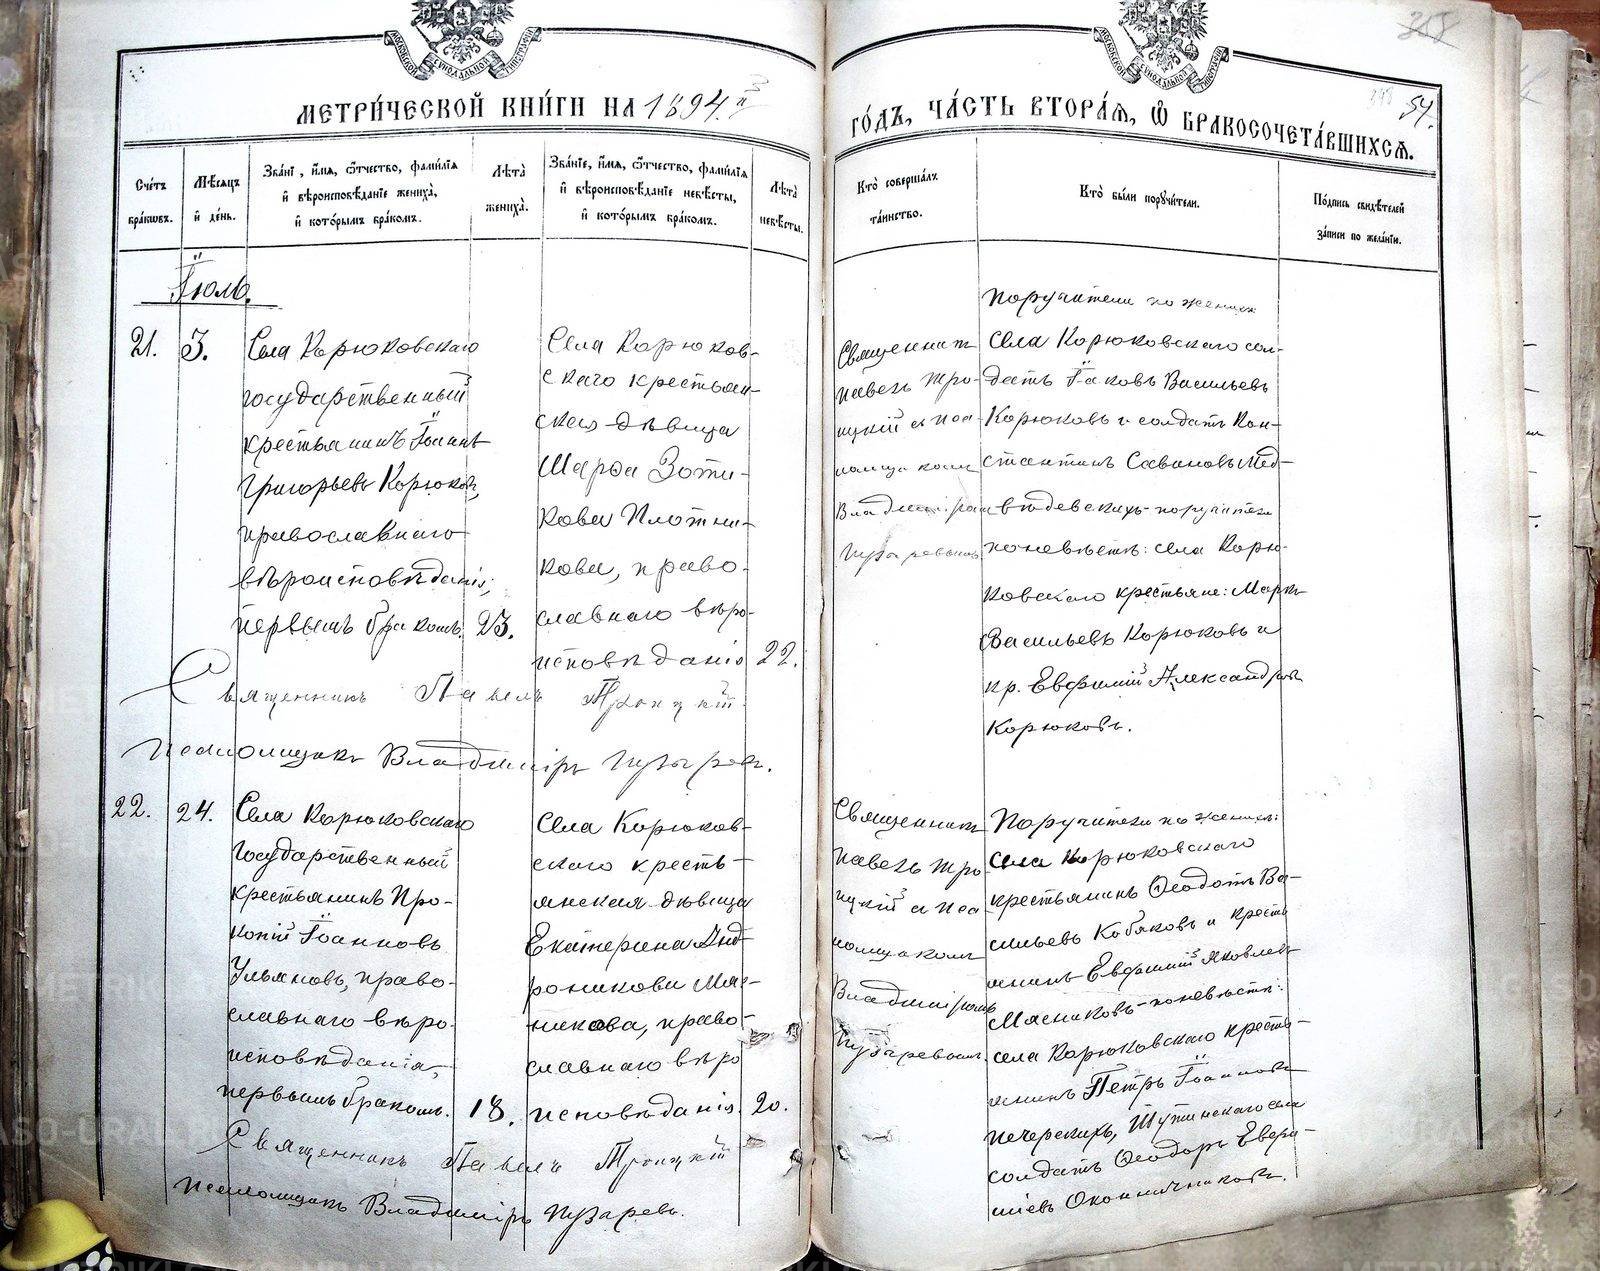 МЕТРИ́ЧЕСКОЙ КНИ́ГИ НА 1894.й
ГО́ДЪ, ЧА́СТЬ ВТОРА́Я, Ѽ БРАКОСОЧЕТА́ВШИХСЯ.
54.
Сче́тъ бра́кѡвъ.
Мѣ́сяцъ и҆ де́нь.
Зва́нї , и҆́мя, ѻ҆́тчество, фами́лїя и҆ вѣроисповѣ́данїе жениха̀, и҆ кото́рымъ бра́комъ.
Лѣта̀ жениха̀.
Зва́нїе, и҆́мя, ѻ҆́тчество, фами́лїя и҆ вѣроисповѣ́данїе невѣ́сты, и҆ кото́рымъ бра́комъ.
Лѣта̀ невѣ́сты.
Кто̀ соверша́лъ та́инство.
Кто̀ бы́ли поручи́тели.
По́дпись свидѣ́телей за́писи по жела́нїи.
Іюль.
21.
3.
Села Корюковскаго
государственный
крестьянинъ Іоаннъ
Григорьевъ Корюковъ,
православнаго
вѣроисповѣданія,
первымъ бракомъ.
23.
Села Корюков-
скаго крестьян-
ская дѣвица
Марѳа Зоти-
кова Плотни-
кова, право-
славнаго вѣро-
исповѣданія
22.
Священник
Павелъ Тро-
ицкій съ Пса
ломщикомъ
Владиміромъ
Пузыревымъ
Поручители по женихѣ
села Корюковскаго сол-
датъ Іаковъ Васильевъ
Корюковъ и солдатъ Кон-
стантинъ Савиновъ Мед-
вѣдевскихъ поручители
по невѣстѣ: села Корю-
ковскаго крестьяне: Маркъ
Васильевъ Корюковъ и
кр. Евфимій Александровъ
Корюковъ.
Священникъ Павелъ Троицкій
Псаломщикъ Владиміръ Пузыревъ.
22.
24.
Села Корюковскаго
государственный
крестьянинъ Про-
копій Іоанновъ
Ульяновъ, право-
славнаго вѣро-
исповѣданія,
первымъ бракомъ.
18.
Села Корюков-
скаго кресть-
янская дѣвица
Екатерина Анд-
роникова Мяс-
никова, право-
славнаго вѣро
исповѣданія.
20.
Священник
Павелъ Тро
ицкій съ Пса
ломщикомъ
Владиміромъ
Пузыревымъ.
Поручители по женихѣ:
села Корюковскаго
крестьянинъ Ѳеодотъ Ва-
сильевъ Кобяковъ и кресть
янинъ Евфимій Яковлевъ
Мясниковъ-по невѣстѣ:
села Корюковскаго кресть-
янинъ Петръ Іоанновъ
Печерскихъ, Шутинскаго села
солдатъ Ѳеодоръ Евфи-
міевъ Оконничниковъ.
Священникъ Павелъ Троицкій
Псаломщикъ Владиміръ Пузыревъ.